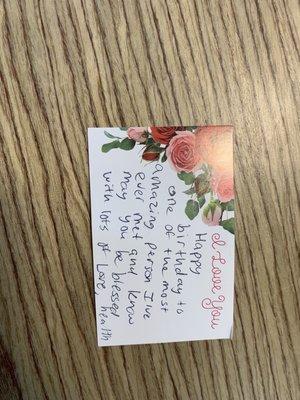 I Love You
Happy
birthday to
one of the most
amazing person I've
ever met and know
may you be blessed
with lots of Love, health